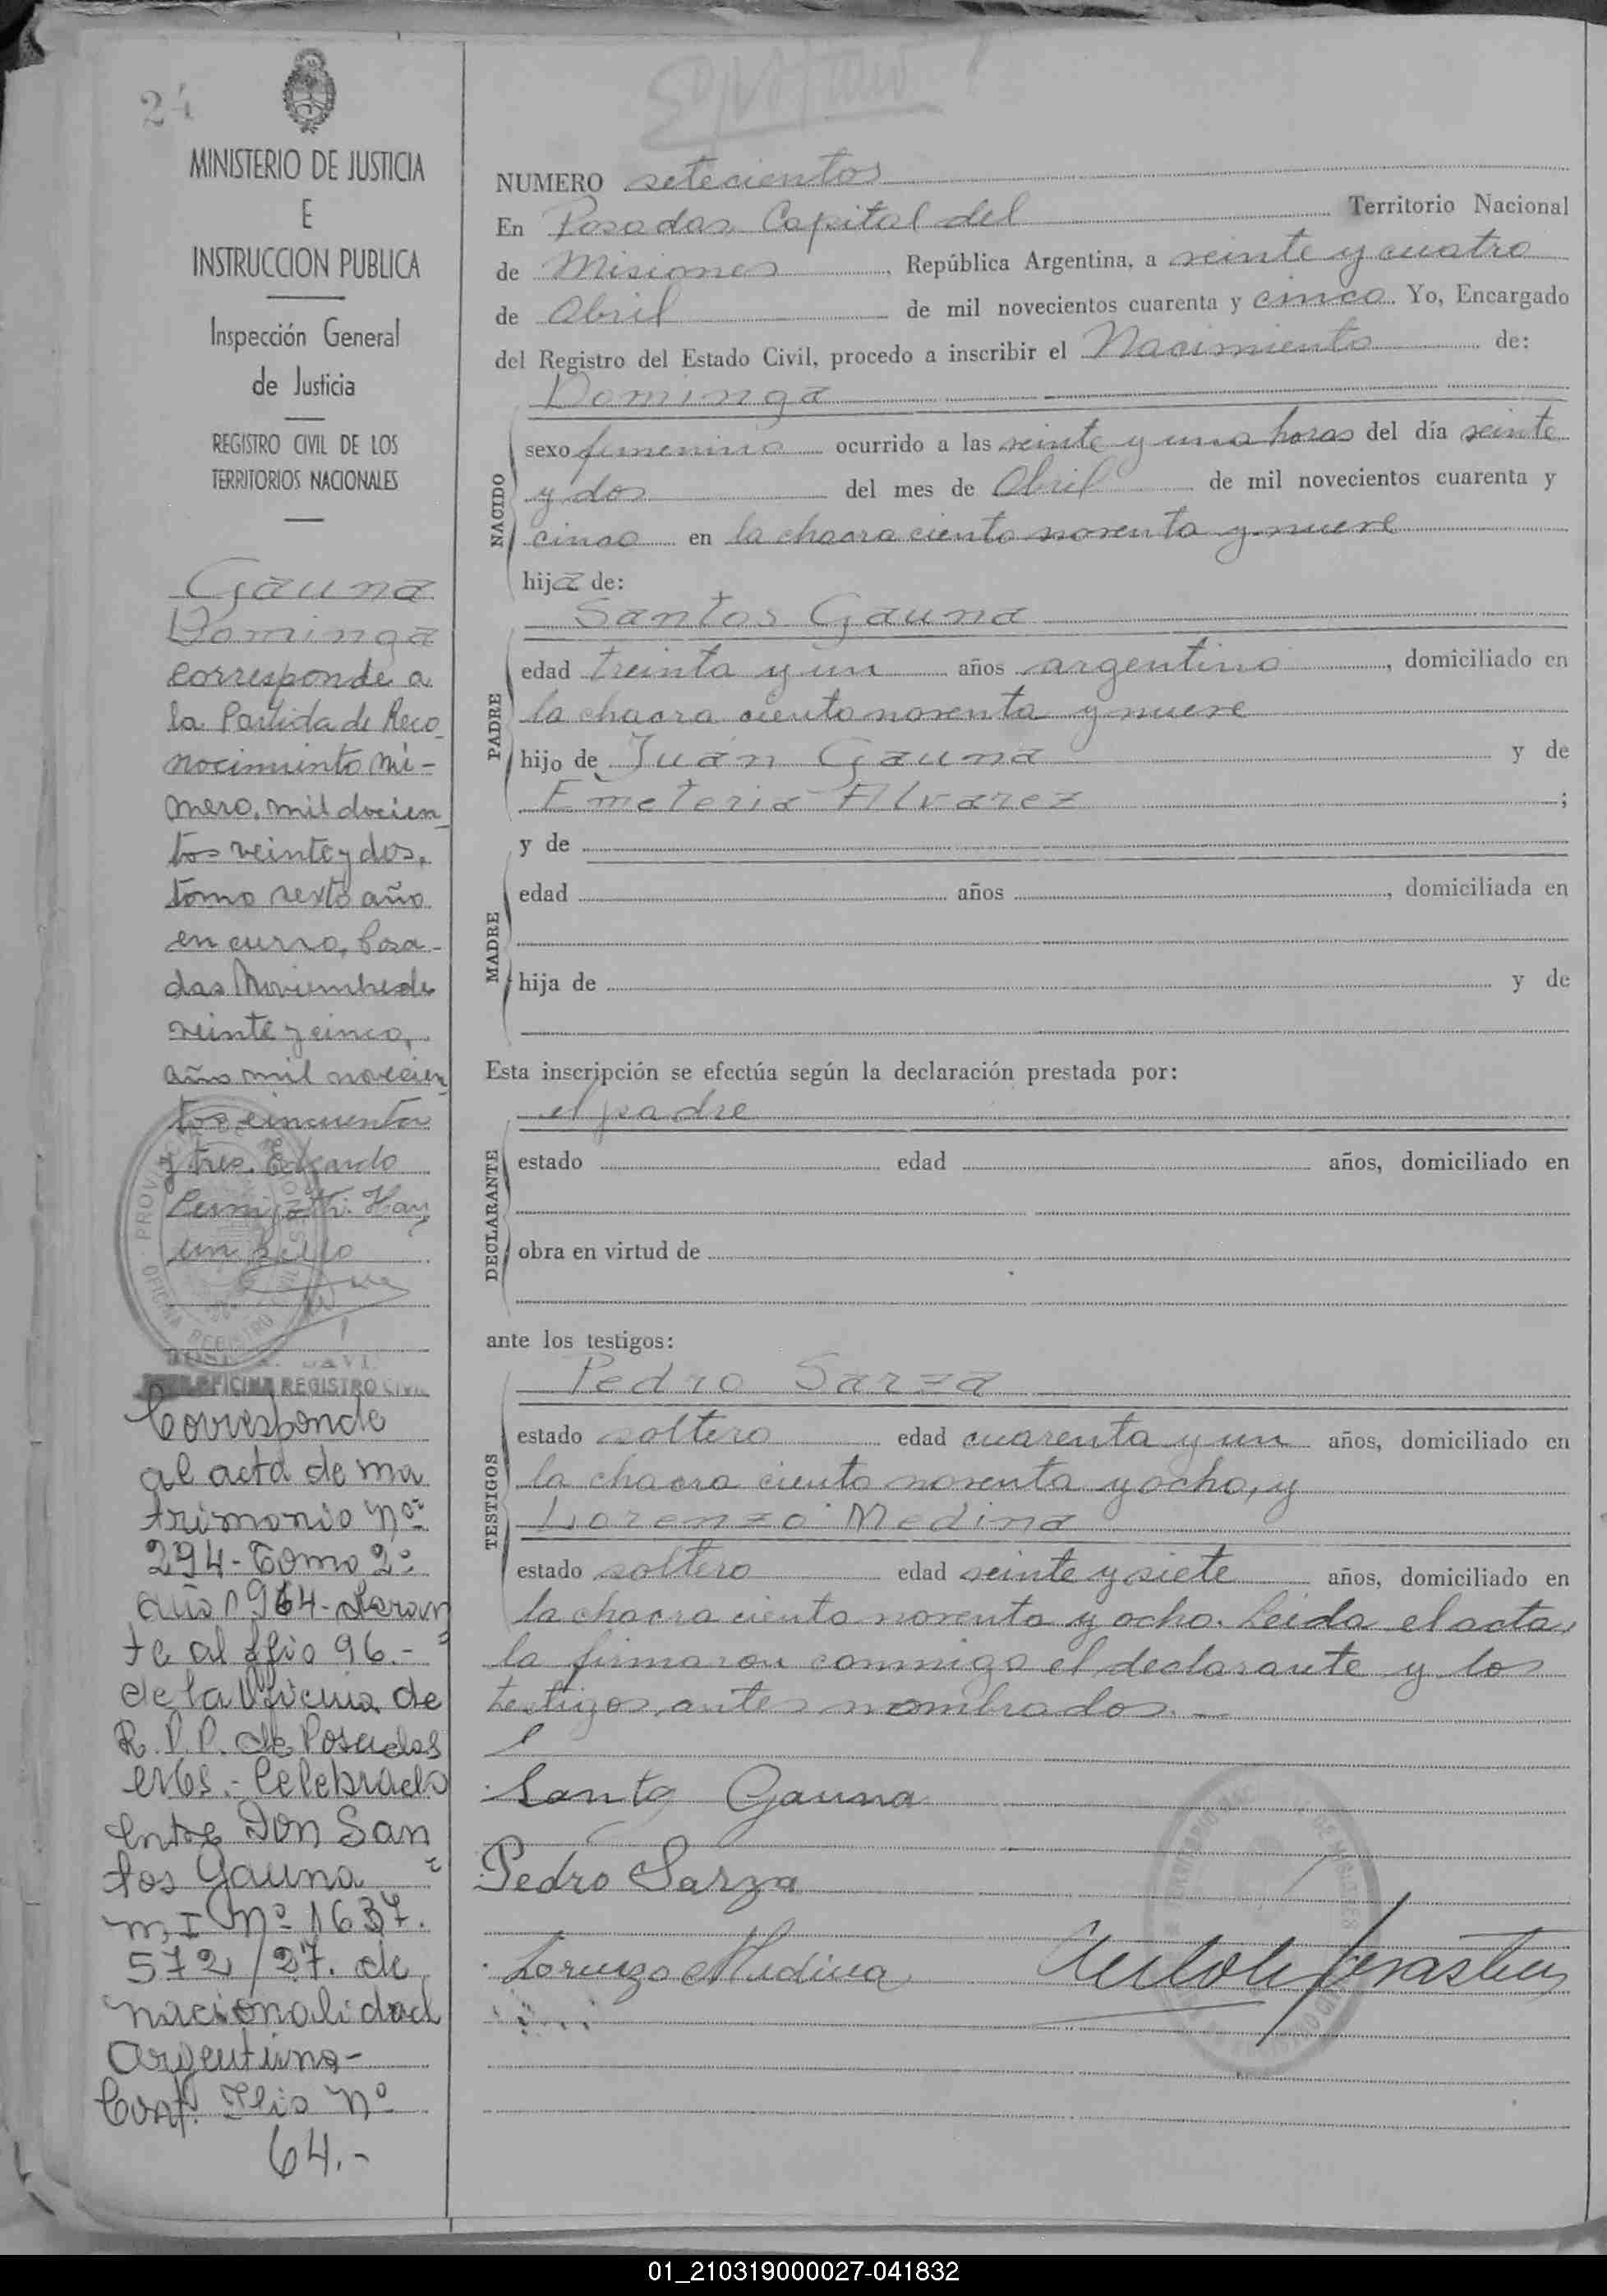 24
MINISTERIO DE JUSTICIA
E
INSTRUCCION PUBLICA
Inspección General
de Justicia
REGISTRO CIVIL DE LOS
TERRITORIOS NACIONALES
Gauna
Dominga
corresponde a
la Partida de Reco
nocimiento nú-
mero, mil docien
tos veinte y dos,
tomo sexto año
en curso, Posa-
das Noviembre de
veinte y cinco,
año mil novecien
tos cincuenta
y tres. Edgardo
Hay
un sello
OFICINA REGISTRO CIVIL
Corresponde
al acta de ma
trimonio Nº
294 - Tomo 2º
año 1964 - 
te al flio 96.-
de la Oficina de
R. P. P. de Posadas
Celebrado
Entre Don San
tos Gauna
M.I Nº 1637.
572/27. de
nacionalidad
Argentina-
Conf. Flio Nº
64.-
NUMERO setecientos
En Posadas Capital del Territorio Nacional
de Misiones, República Argentina, a veinte y cuatro
de Abril de mil novecientos cuarenta y cinco. Yo, Encargado
del Registro del Estado Civil, procedo a inscribir el Nacimiento de:
Dominga
NACIDO
sexo femenino ocurrido a las veinte y una horas del día veinte
y dos del mes de Abril de mil novecientos cuarenta y
cinco en la chacra ciento noventa y nueve
hija de:
Santos Gauna
PADRE
edad treinta y un años argentino, domiciliado en
la chacra ciento noventa y nueve
hijo de Juan Gauna y de
Emeteria Alvarez ;
y de
MADRE
edad años , domiciliada en
hija de y de
Esta inscripción se efectúa según la declaración prestada por:
el padre
DECLARANTE
estado edad años, domiciliado en
obra en virtud de
ante los testigos:
Pedro Sarza
TESTIGOS
estado soltero edad cuarenta y un años, domiciliado en
la chacra ciento noventa y ocho, y
Lorenzo Medina
estado soltero edad veinte y siete años, domiciliado en
la chacra ciento noventa y ocho. Leida el acta,
la firmaron conmigo el declarante y los
testigos antes nombrados.-
Santo Gauna
Pedro Sarza
Lorenzo Medina
01_210319000027-041832